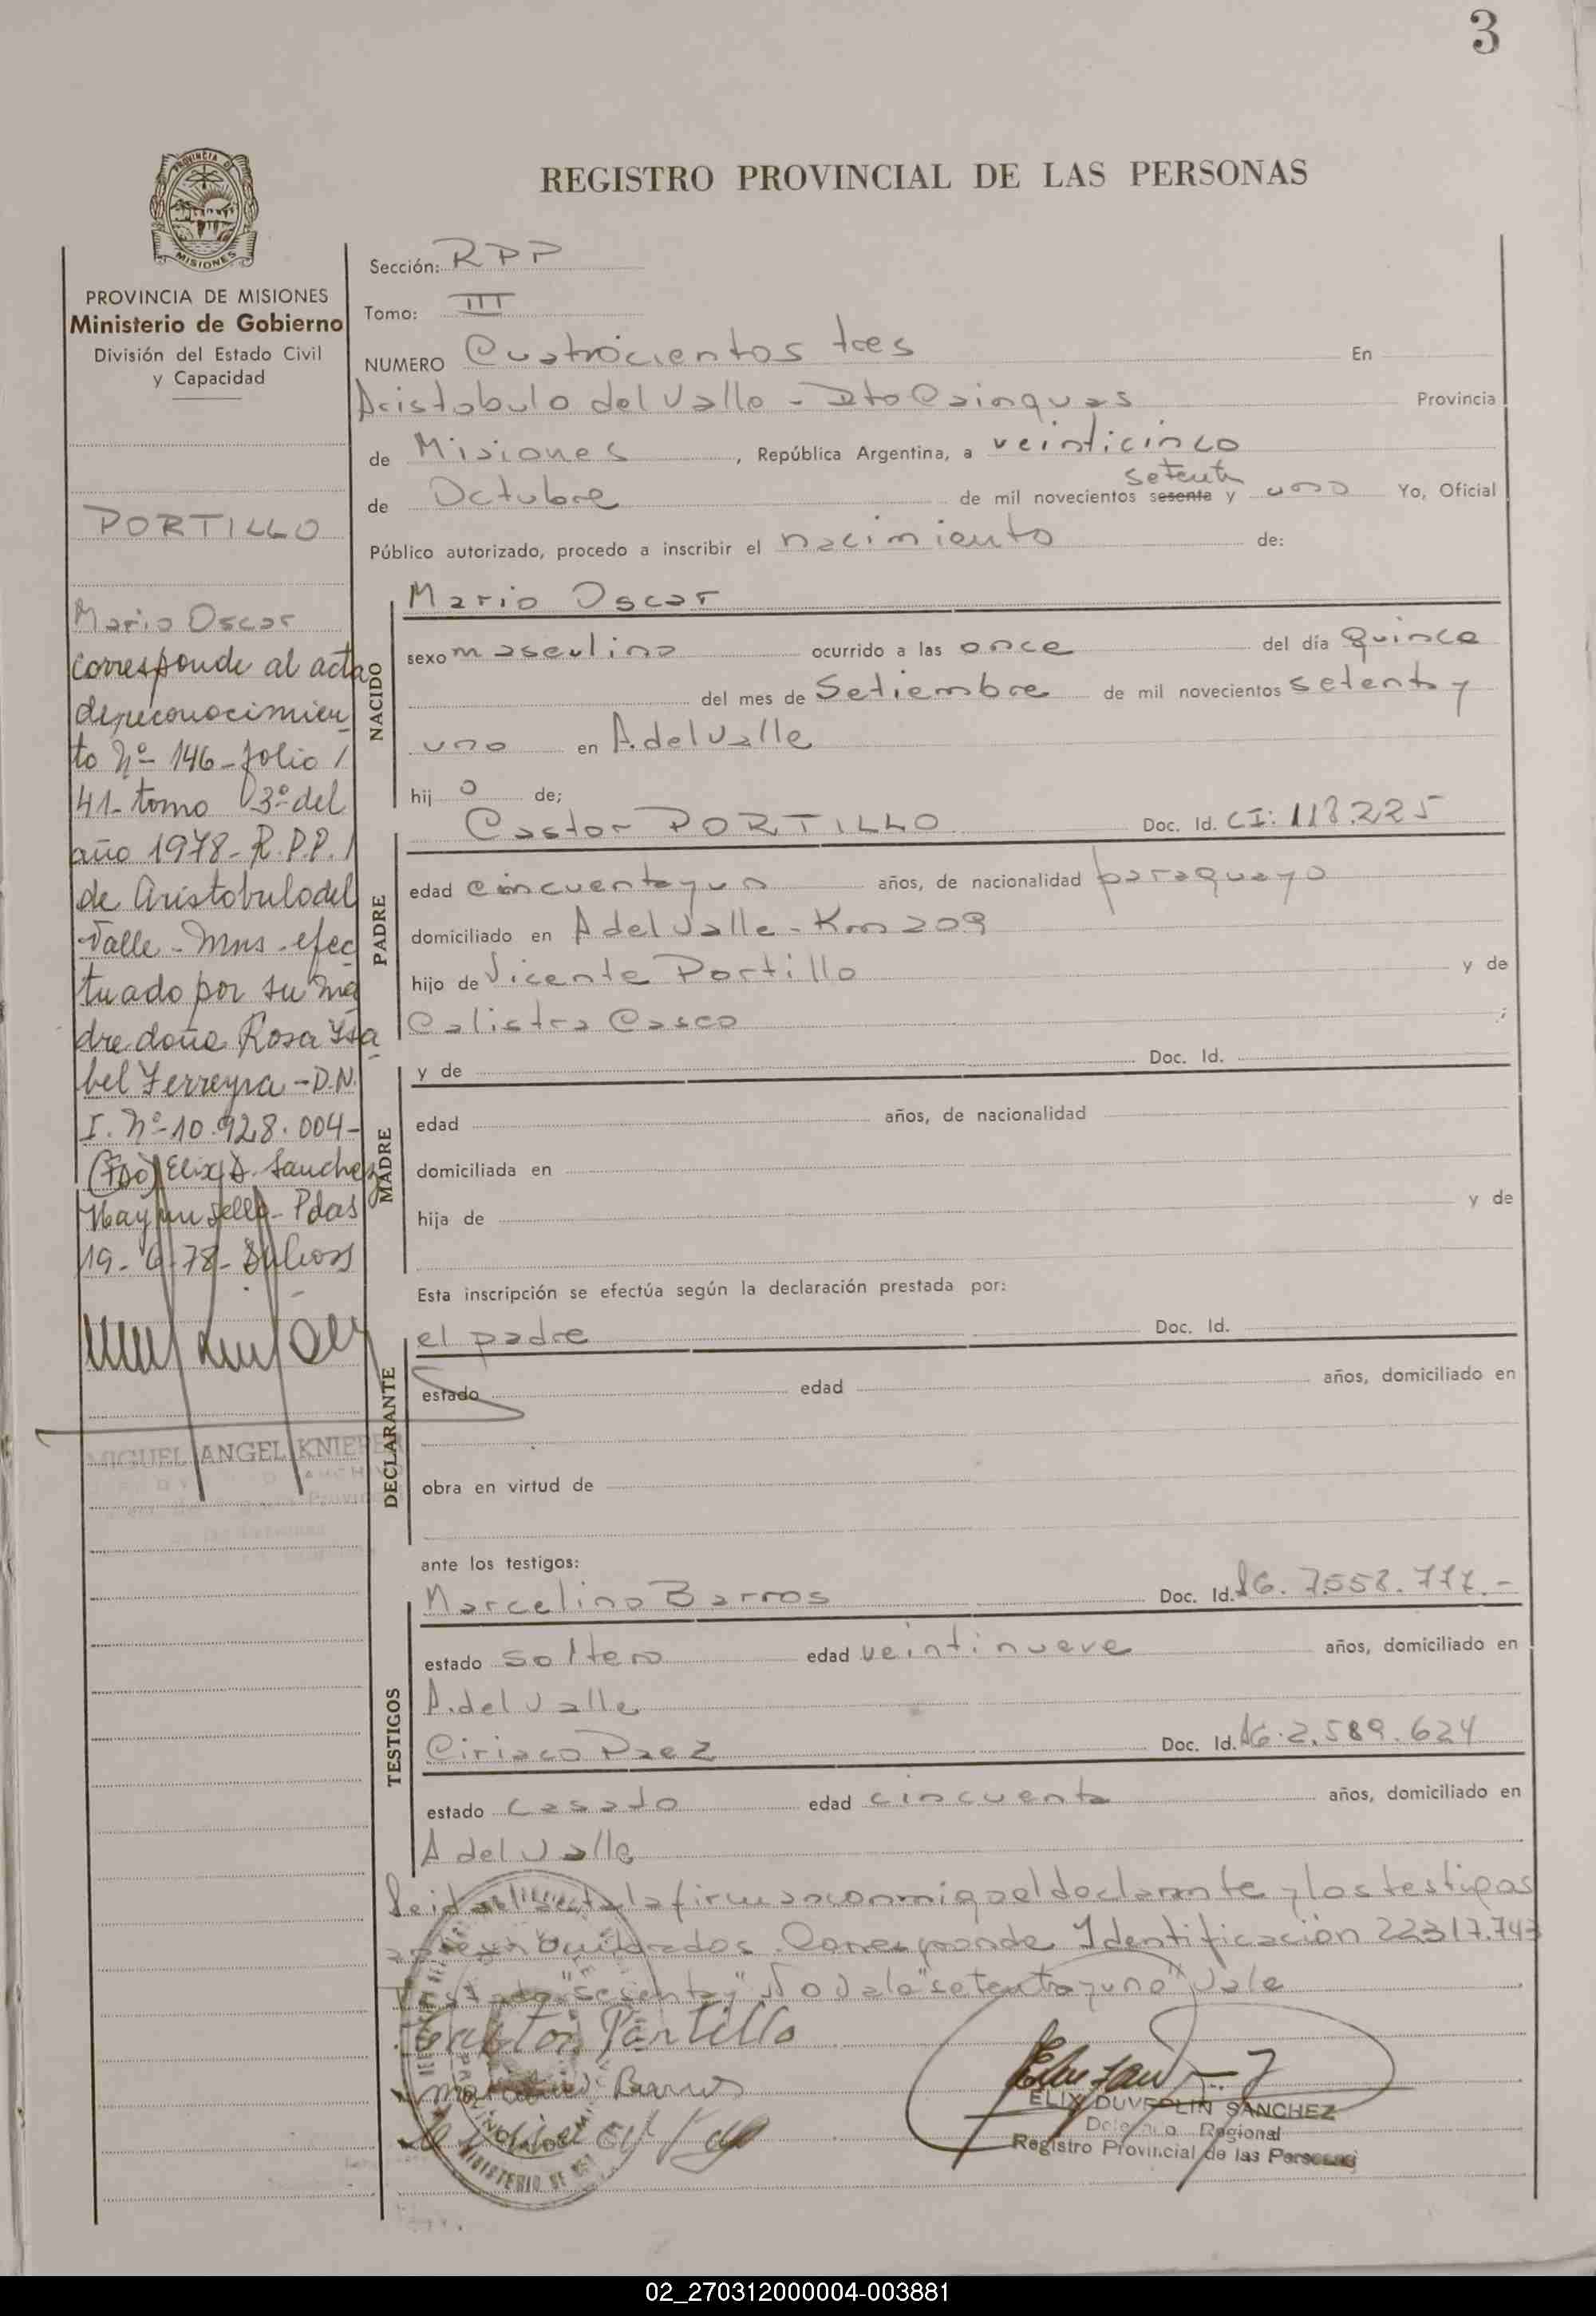 3
REGISTRO PROVINCIAL DE LAS PERSONAS
PROVINCIA DE MISIONES
Ministerio de Gobierno
División del Estado Civil
y Capacidad
PORTILLO
Mario Oscar
corresponde al acta
de reconocimien
to Nº 146 - folio /
41 - tomo 3º del
año 1978 - R.P.P. /
de Aristobulo del
Valle - Mns - efec
tuado por su ma
dre doña Rosa Isa
bel Ferreyra - D.N.
I. Nº 10.928.004 -
(Fdo) Elix D. Sanchez
Hay un sello - Pdas
19 - 6 - 78 -
MIGUEL ANGEL KNIEPER
Sección: RPP
Tomo: III
NUMERO Cuatrocientos tres En
Aristobulo del Valle - Dto Cainguas Provincia
de Misiones, República Argentina, a veinticinco
setenta
de Octubre de mil novecientos sesenta y uno Yo, Oficial
Público autorizado, procedo a inscribir el nacimiento de:
NACIDO
Mario Oscar
sexo masculino ocurrido a las once del día quince
del mes de Setiembre de mil novecientos setenta y
uno en A. del Valle
hij o de;
PADRE
Castor PORTILLO Doc. Id. CI: 118.225
edad cincuenta y un años, de nacionalidad paraguayo
domiciliado en A del Valle - Km 209
hijo de Vicente Portillo y de
Calistra Casco ;
MADRE
y de Doc. Id.
edad años, de nacionalidad
domiciliada en
hija de y de
Esta inscripción se efectúa según la declaración prestada por:
DECLARANTE
el padre Doc. Id.
estado edad años, domiciliado en
obra en virtud de
ante los testigos:
TESTIGOS
Marcelino Barros Doc. Id. 7.558.777.-
estado soltero edad veintinueve años, domiciliado en
A. del Valle
Ciriaco Paez Doc. Id. 2.589.624
estado casado edad cincuenta años, domiciliado en
A del Valle
Leida el acta la firman conmigo el declarante y los testigos
Corresponde Identificación 22317.743
Testado "sesenta y" No Vale "setenta y uno" Vale
Castor Portillo
Barros
ELIX DUVERLIN SANCHEZ
Delegado Regional
Registro Provincial de las Personas
02_270312000004-003881